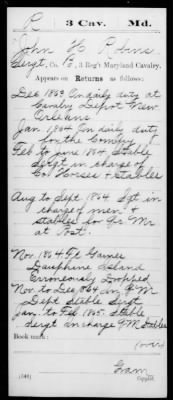 R 3 Cav. Md.
John H Robins
Sergt, Co. B, 3 Reg't Maryland Cavalry.
Appears on Returns as follows:
Dec 1863 On daily duty at
Cavalry Depot New
Orleans
Jan 1864 On daily duty
for the Company
Feb to June 1864, Stable
Sergt in charge of
Co Horses & Stables
Aug to Sept 1864 Sgt in
charge of men &
stables for Qr Mr
at Post.
Nov 1864 Ft Gaines
Dauphine Island
Erroneously Dropped
Nov. to Dec 1864 in Q. Mr
Dept Stable Sergt
Jan. to Feb 1865. Stable
Sergt in charge Q M Stables
Book mark:
(over)
(546)
Copyist.